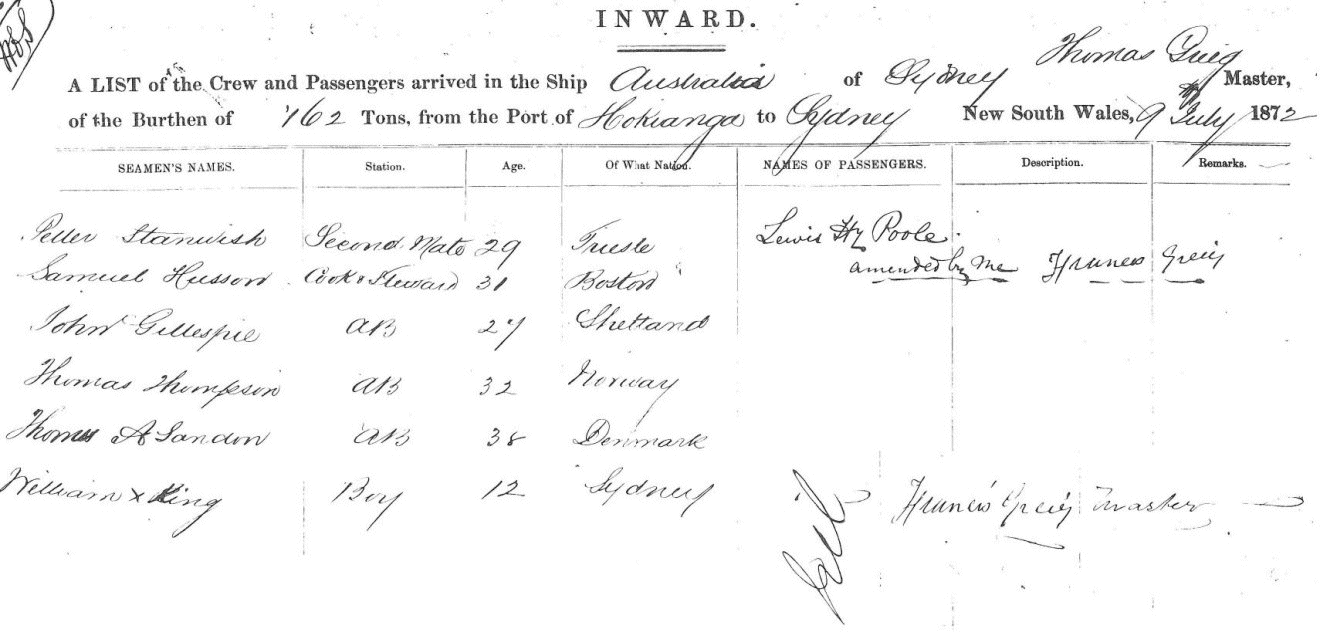 INWARD.
Thomas Greig
A LIST of the Crew and Passengers arrived in the Ship Australia of Sydney Master,
of the Burthen of 162 Tons, from the Port of Hokianga to Sydney New South Wales, 9 July 1872
SEAMEN'S NAMES. Station. Age. Of What Nation. NAMES OF PASSENGERS. Description. Remarks.
Petter Stanwish Second Mate 29 Trieste Lewis Hy Poole.
amended by me Francis Greig
Samuel Husson Cook & Steward 31 Boston
John Gillespie AB 27 Shetland
Thomas Thompson AB 32 Norway
Thomas A Sandon AB 38 Denmark
William x King Boy 12 Sydney
Francis Greig Master